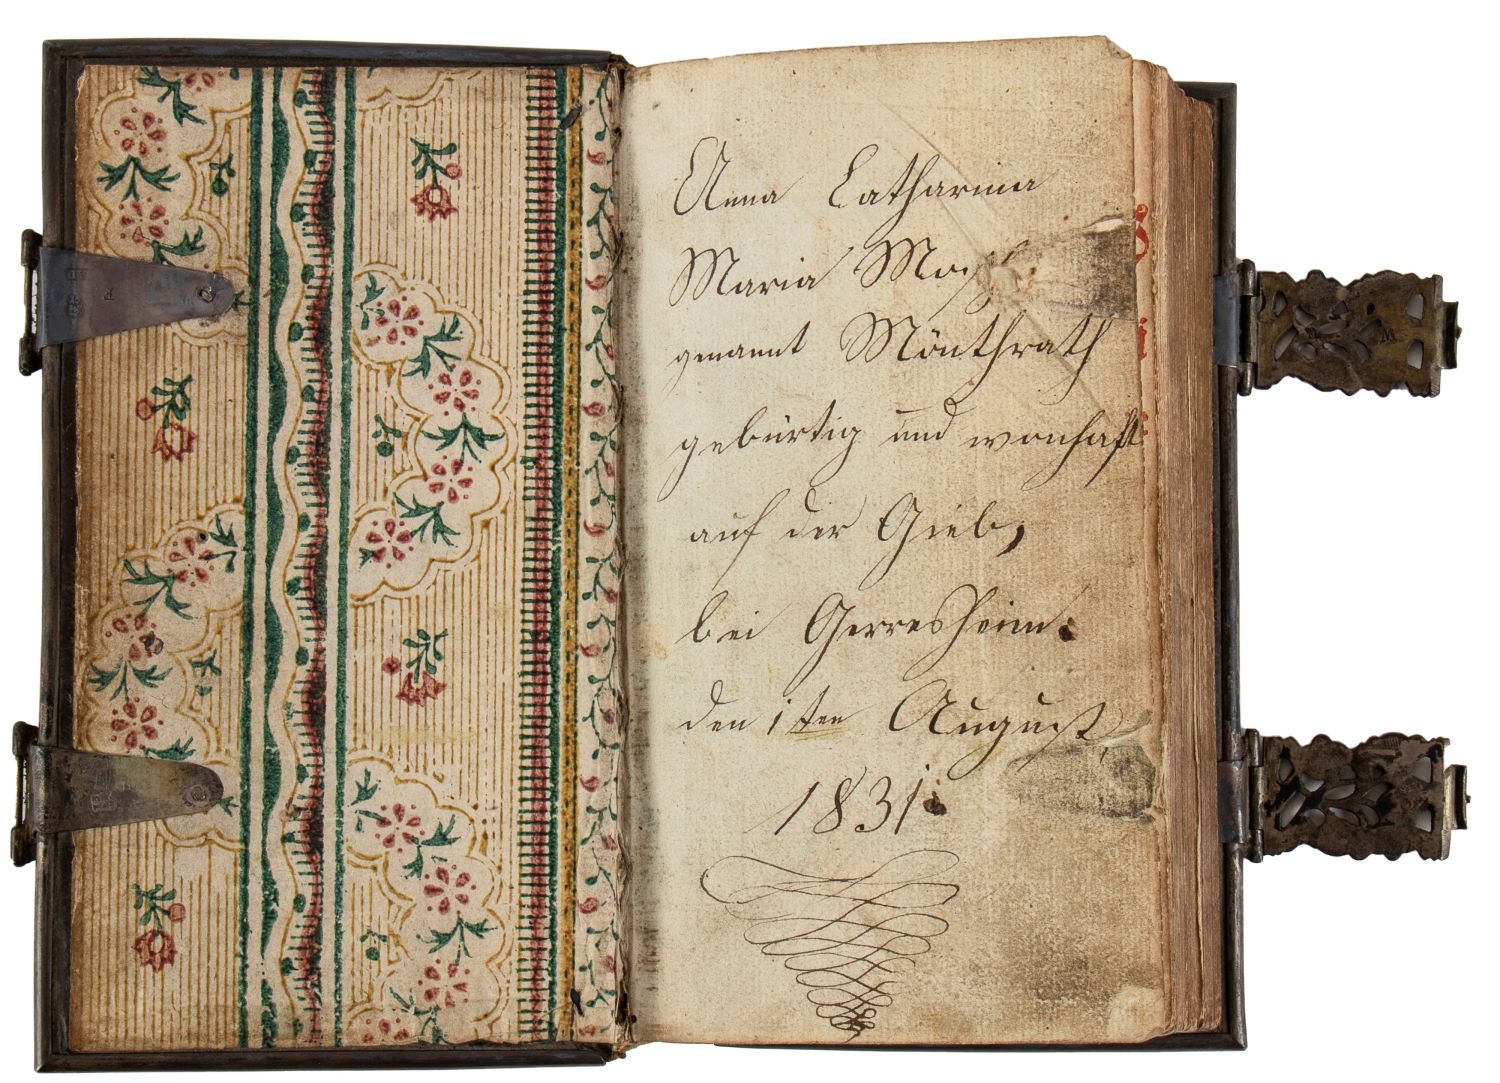 Anna Catharina
Maria
genannt Mönthrath
gebürtig und wonhaft
auf der Gieb,
bei Gerresheim:
den 1ten August
1831.